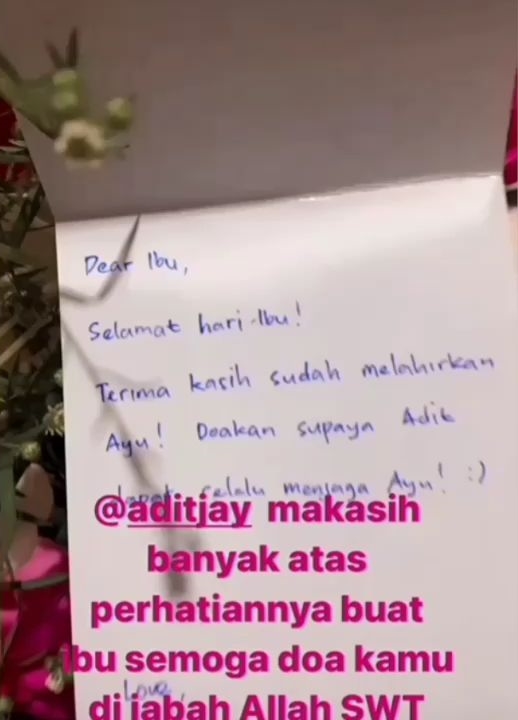 Dear Ibu,
Selamat hari Ibu!
Terima kasih sudah melahirkan
Ayu! Doakan supaya Adit
dapat selalu menjaga Ayu! :)
@aditjay makasih
banyak atas
perhatiannya buat
ibu semoga doa kamu
Love,
di jabah Allah SWT